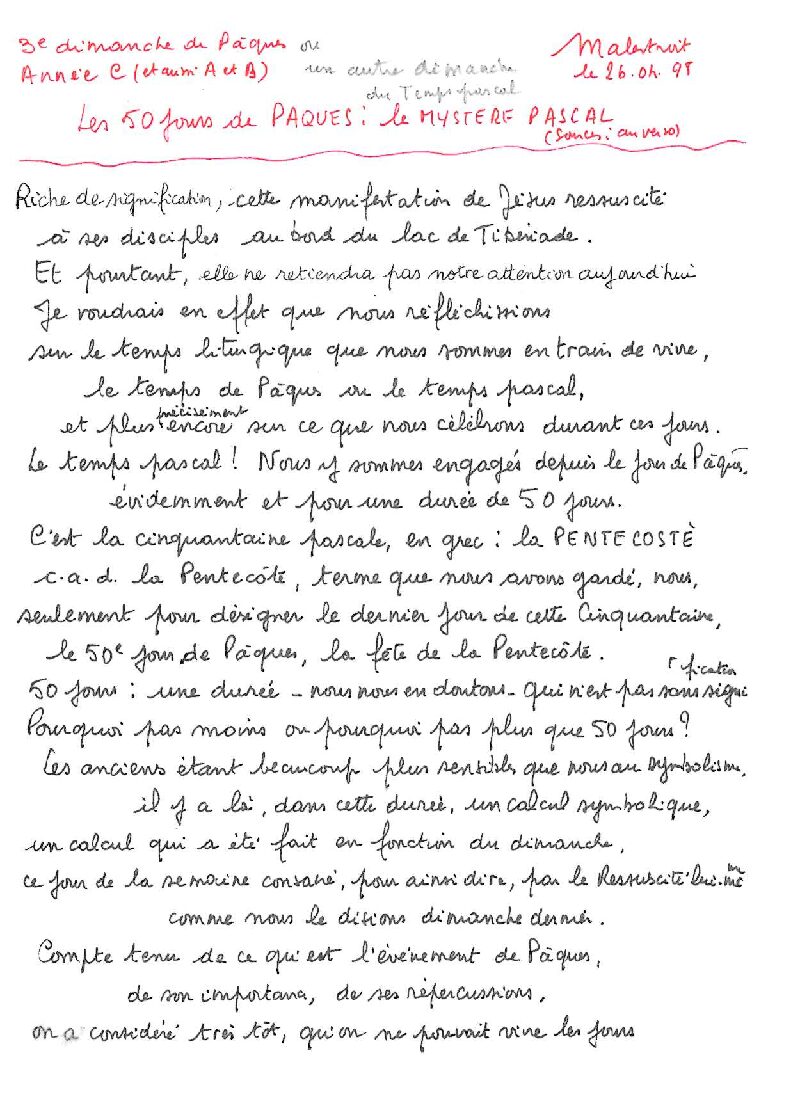 3e dimanche de Pâques ou
Année C (et aussi A et B) un autre dimanche
du Temps pascal
Malestroit
le 26.04.98
Les 50 jours de PAQUES : le MYSTERE PASCAL
(Sources : au verso)
Riche de signification, cette manifestation de Jésus ressuscité
à ses disciples au bord du lac de Tibériade.
Et pourtant, elle ne retiendra pas notre attention aujourd'hui
Je voudrais en effet que nous réfléchissions
sur le temps liturgique que nous sommes en train de vivre,
le temps de Pâques ou le temps pascal,
et plus précisément encore sur ce que nous célébrons durant ces jours.
Le temps pascal ! Nous y sommes engagés depuis le jour de Pâques,
évidemment et pour une durée de 50 jours.
C'est la cinquantaine pascale, en grec : la PENTECOSTÈ
c.a.d. la Pentecôte, terme que nous avons gardé, nous,
seulement pour désigner le dernier jour de cette Cinquantaine,
le 50e jour de Pâques, la fête de la Pentecôte.
50 jours : une durée - nous nous en doutons - qui n'est pas sans signification
Pourquoi pas moins ou pourquoi pas plus que 50 jours ?
Les anciens étant beaucoup plus sensibles que nous au symbolisme,
il y a là, dans cette durée, un calcul symbolique,
un calcul qui a été fait en fonction du dimanche,
ce jour de la semaine consacré, pour ainsi dire, par le Ressuscité lui-même
comme nous le disions dimanche dernier.
Compte tenu de ce qu'est l'événement de Pâques,
de son importance, de ses répercussions,
on a considéré très tôt, qu'on ne pouvait vivre les jours